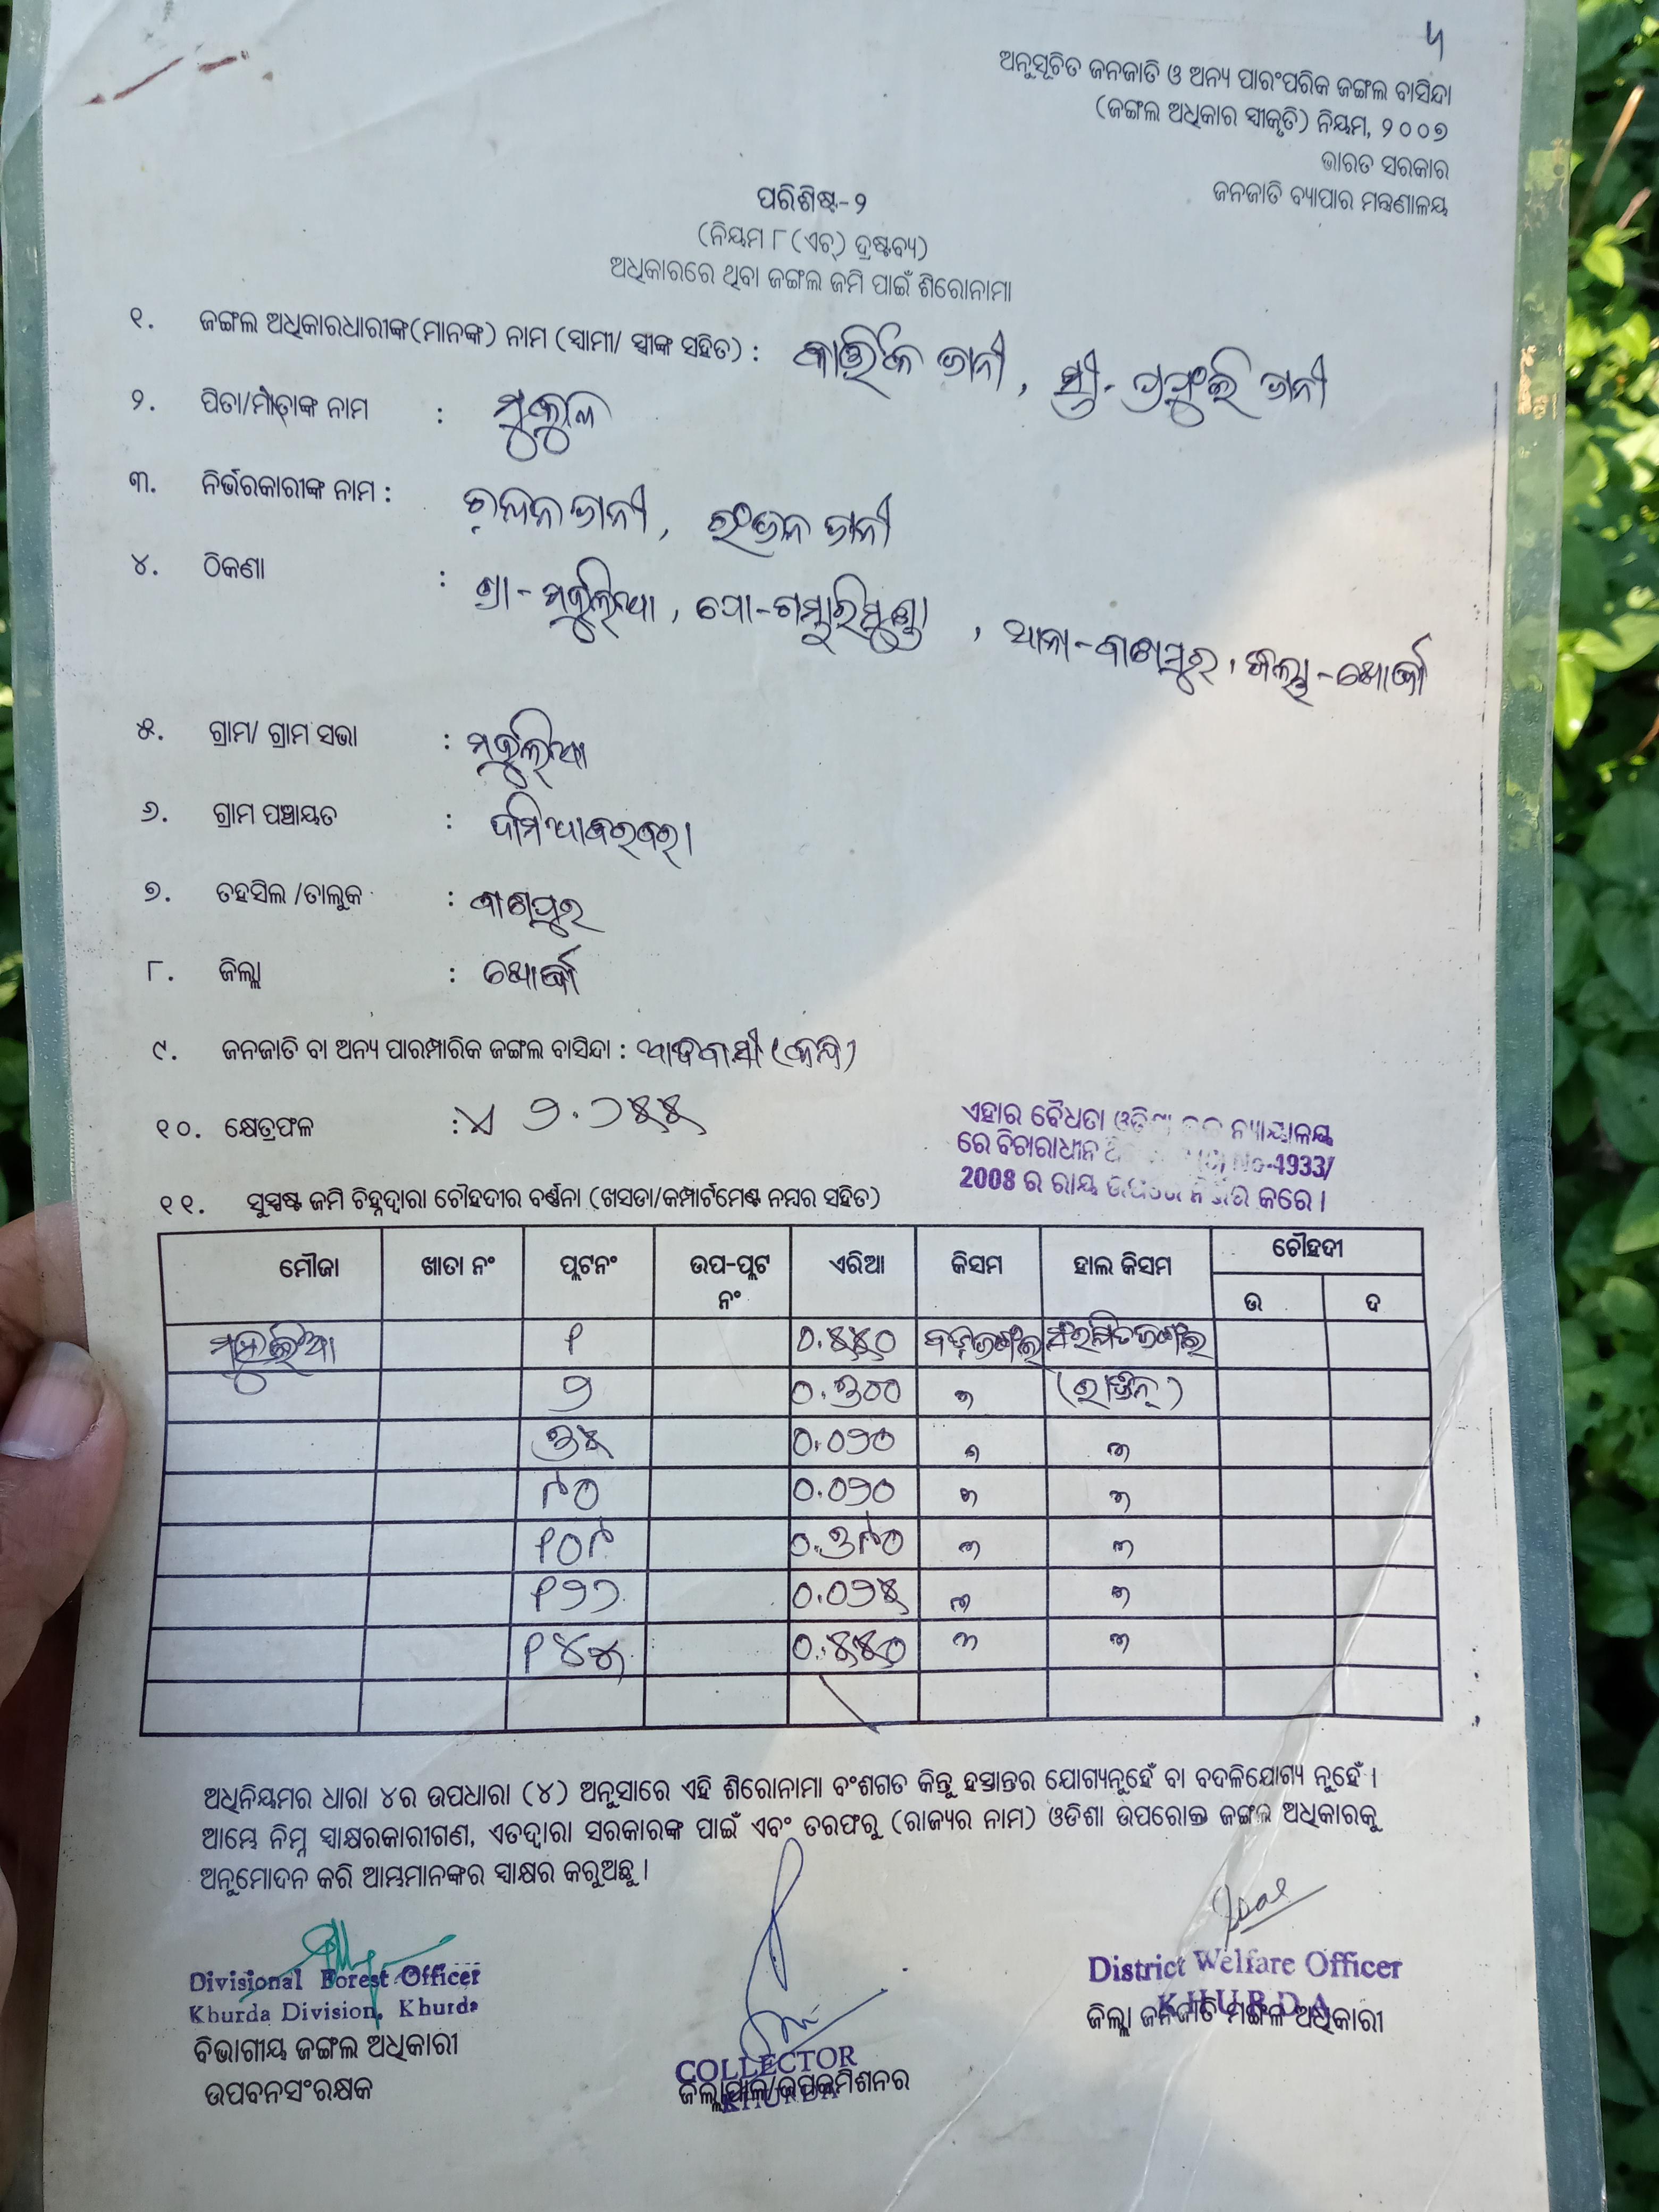 ୳
ଅନୁସୂଚିତ ଜନଜାତି ଓ ଅନ୍ୟ ପାରଂପରିକ ଜଙ୍ଗଲ ବାସିନ୍ଦା
(ଜଙ୍ଗଲ ଅଧିକାର ସ୍ୱୀକୃତି) ନିୟମ, ୨୦୦୭
ଭାରତ ସରକାର
ଜନଜାତି ବ୍ୟାପାର ମନ୍ତ୍ରଣାଳୟ
ପରିଶିଷ୍ଟ-୨
(ନିୟମ ୮(ଏଚ୍) ଦ୍ରଷ୍ଟବ୍ୟ)
ଅଧିକାରରେ ଥିବା ଜଙ୍ଗଲ ଜମି ପାଇଁ ଶିରୋନାମା
୧. ଜଙ୍ଗଲ ଅଧିକାରଧାରୀଙ୍କ(ମାନଙ୍କ) ନାମ (ସ୍ୱାମୀ/ ସ୍ତ୍ରୀଙ୍କ ସହିତ) : କାର୍ତ୍ତିକ ଜାନୀ, ସ୍ତ୍ରୀ-
୨. ପିତା/ମାତାଙ୍କ ନାମ : ମୁକୁଳ
୩. ନିର୍ଭରକାରୀଙ୍କ ନାମ : ଜାନୀ, ରଂଜନ ଜାନୀ
୪. ଠିକଣା : ଗ୍ରା- ମର୍ଜୁଲିଆ, ପୋ-ଗମ୍ଭାରିମୁଣ୍ଡା, ଥାନା-ବାଣପୁର, ଜିଲ୍ଲା-ଖୋର୍ଦ୍ଧା
୫. ଗ୍ରାମ/ ଗ୍ରାମ ସଭା : ମର୍ଜୁଲିଆ
୬. ଗ୍ରାମ ପଞ୍ଚାୟତ : ଦାମିଆବରବରା
୭. ତହସିଲ /ତାଲୁକ : ବାଣପୁର
୮. ଜିଲ୍ଲା : ଖୋର୍ଦ୍ଧା
୯. ଜନଜାତି ବା ଅନ୍ୟ ପାରମ୍ପାରିକ ଜଙ୍ଗଲ ବାସିନ୍ଦା : ଆଦିବାସୀ (କନ୍ଧ)
୧୦. କ୍ଷେତ୍ରଫଳ : ୨.୨୫୫
ଏହାର ବୈଧତା ଓଡିଶା ନ୍ୟାୟାଳୟ
ରେ ବିଚାରାଧୀନ No-4933/
2008 ର ରାୟ ଉପରେ ନିର୍ଭର କରେ ।
୧୧. ସୁସ୍ପଷ୍ଟ ଜମି ଚିହ୍ନଦ୍ୱାରା ଚୌହଦୀର ବର୍ଣ୍ଣନା (ଖସଡା/କମ୍ପାର୍ଟମେଣ୍ଟ ନମ୍ବର ସହିତ)
ମୌଜା ଖାତା ନଂ ପ୍ଲଟନଂ ଉପ-ପ୍ଲଟ ନଂ ଏରିଆ କିସମ ହାଲ କିସମ ଚୌହଦୀ
ଉ ଦ
୧ ୦.୫୫୦ ସଂରକ୍ଷିତଜଙ୍ଗଲ
୨ ୦.୩୦୦ "
୩୫ ୦.୦୨୦ " "
୯୦ ୦.୦୨୦ " "
୧୦୯ ୦.୩୯୦ " "
୧୨୨ ୦.୦୨୫ " "
୧୪୪ ୦.୫୫୦ " "
ଅଧିନିୟମର ଧାରା ୪ର ଉପଧାରା (୪) ଅନୁସାରେ ଏହି ଶିରୋନାମା ବଂଶଗତ କିନ୍ତୁ ହସ୍ତାନ୍ତର ଯୋଗ୍ୟନୁହେଁ ବା ବଦଳିଯୋଗ୍ୟ ନୁହେଁ ।
ଆମ୍ଭେ ନିମ୍ନ ସ୍ୱାକ୍ଷରକାରୀଗଣ, ଏତଦ୍ୱାରା ସରକାରଙ୍କ ପାଇଁ ଏବଂ ତରଫରୁ (ରାଜ୍ୟର ନାମ) ଓଡିଶା ଉପରୋକ୍ତ ଜଙ୍ଗଲ ଅଧିକାରକୁ
ଅନୁମୋଦନ କରି ଆମ୍ଭମାନଙ୍କର ସ୍ୱାକ୍ଷର କରୁଅଛୁ ।
Divisional Forest Officer
Khurda Division, Khurda
ବିଭାଗୀୟ ଜଙ୍ଗଲ ଅଧିକାରୀ
ଉପବନସଂରକ୍ଷକ
COLLECTOR
KHURDA
ଜିଲ୍ଲାପାଳ/ଉପକମିଶନର
District Welfare Officer
KHURDA
ଜିଲ୍ଲା ଜନଜାତି ମଙ୍ଗଳ ଅଧିକାରୀ